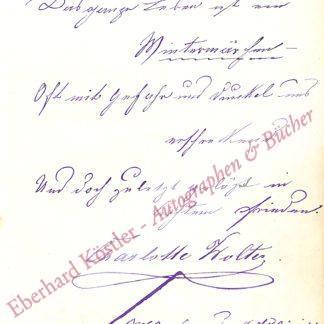 Das ganze Leben ist ein
Wintermärchen –
Oft mit Gefahr und Dunkel uns
Und doch zuletzt in
Frieden.
Charlotte Wolter
Eberhard Köstler - Autographen & Bücher